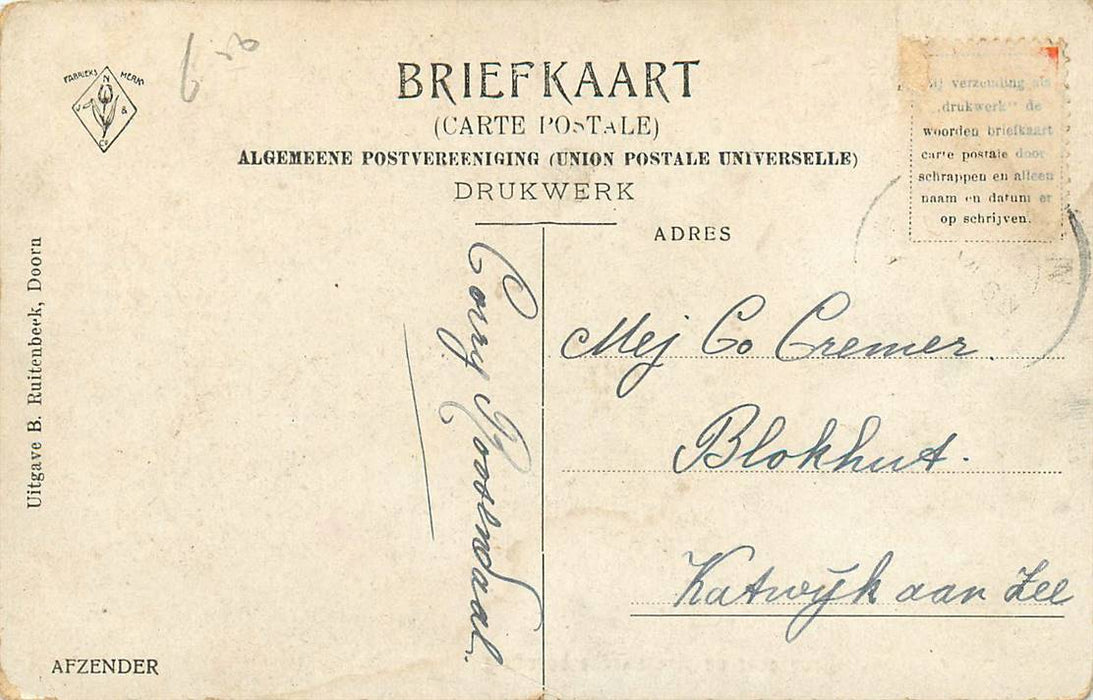 6 50
FABRIEKS MERK
N
J &
Co
BRIEFKAART
(CARTE POSTALE)
ALGEMEENE POSTVEREENIGING (UNION POSTALE UNIVERSELLE)
DRUKWERK
Bij verzending als
„drukwerk" de
woorden briefkaart
carte postale door-
schrappen en alleen
naam en datum er
op schrijven.
ADRES
Uitgave B. Ruitenbeek, Doorn
Corry Roosendaal.
Mej Co Cremer.
Blokhut.
Katwijk aan Zee
AFZENDER